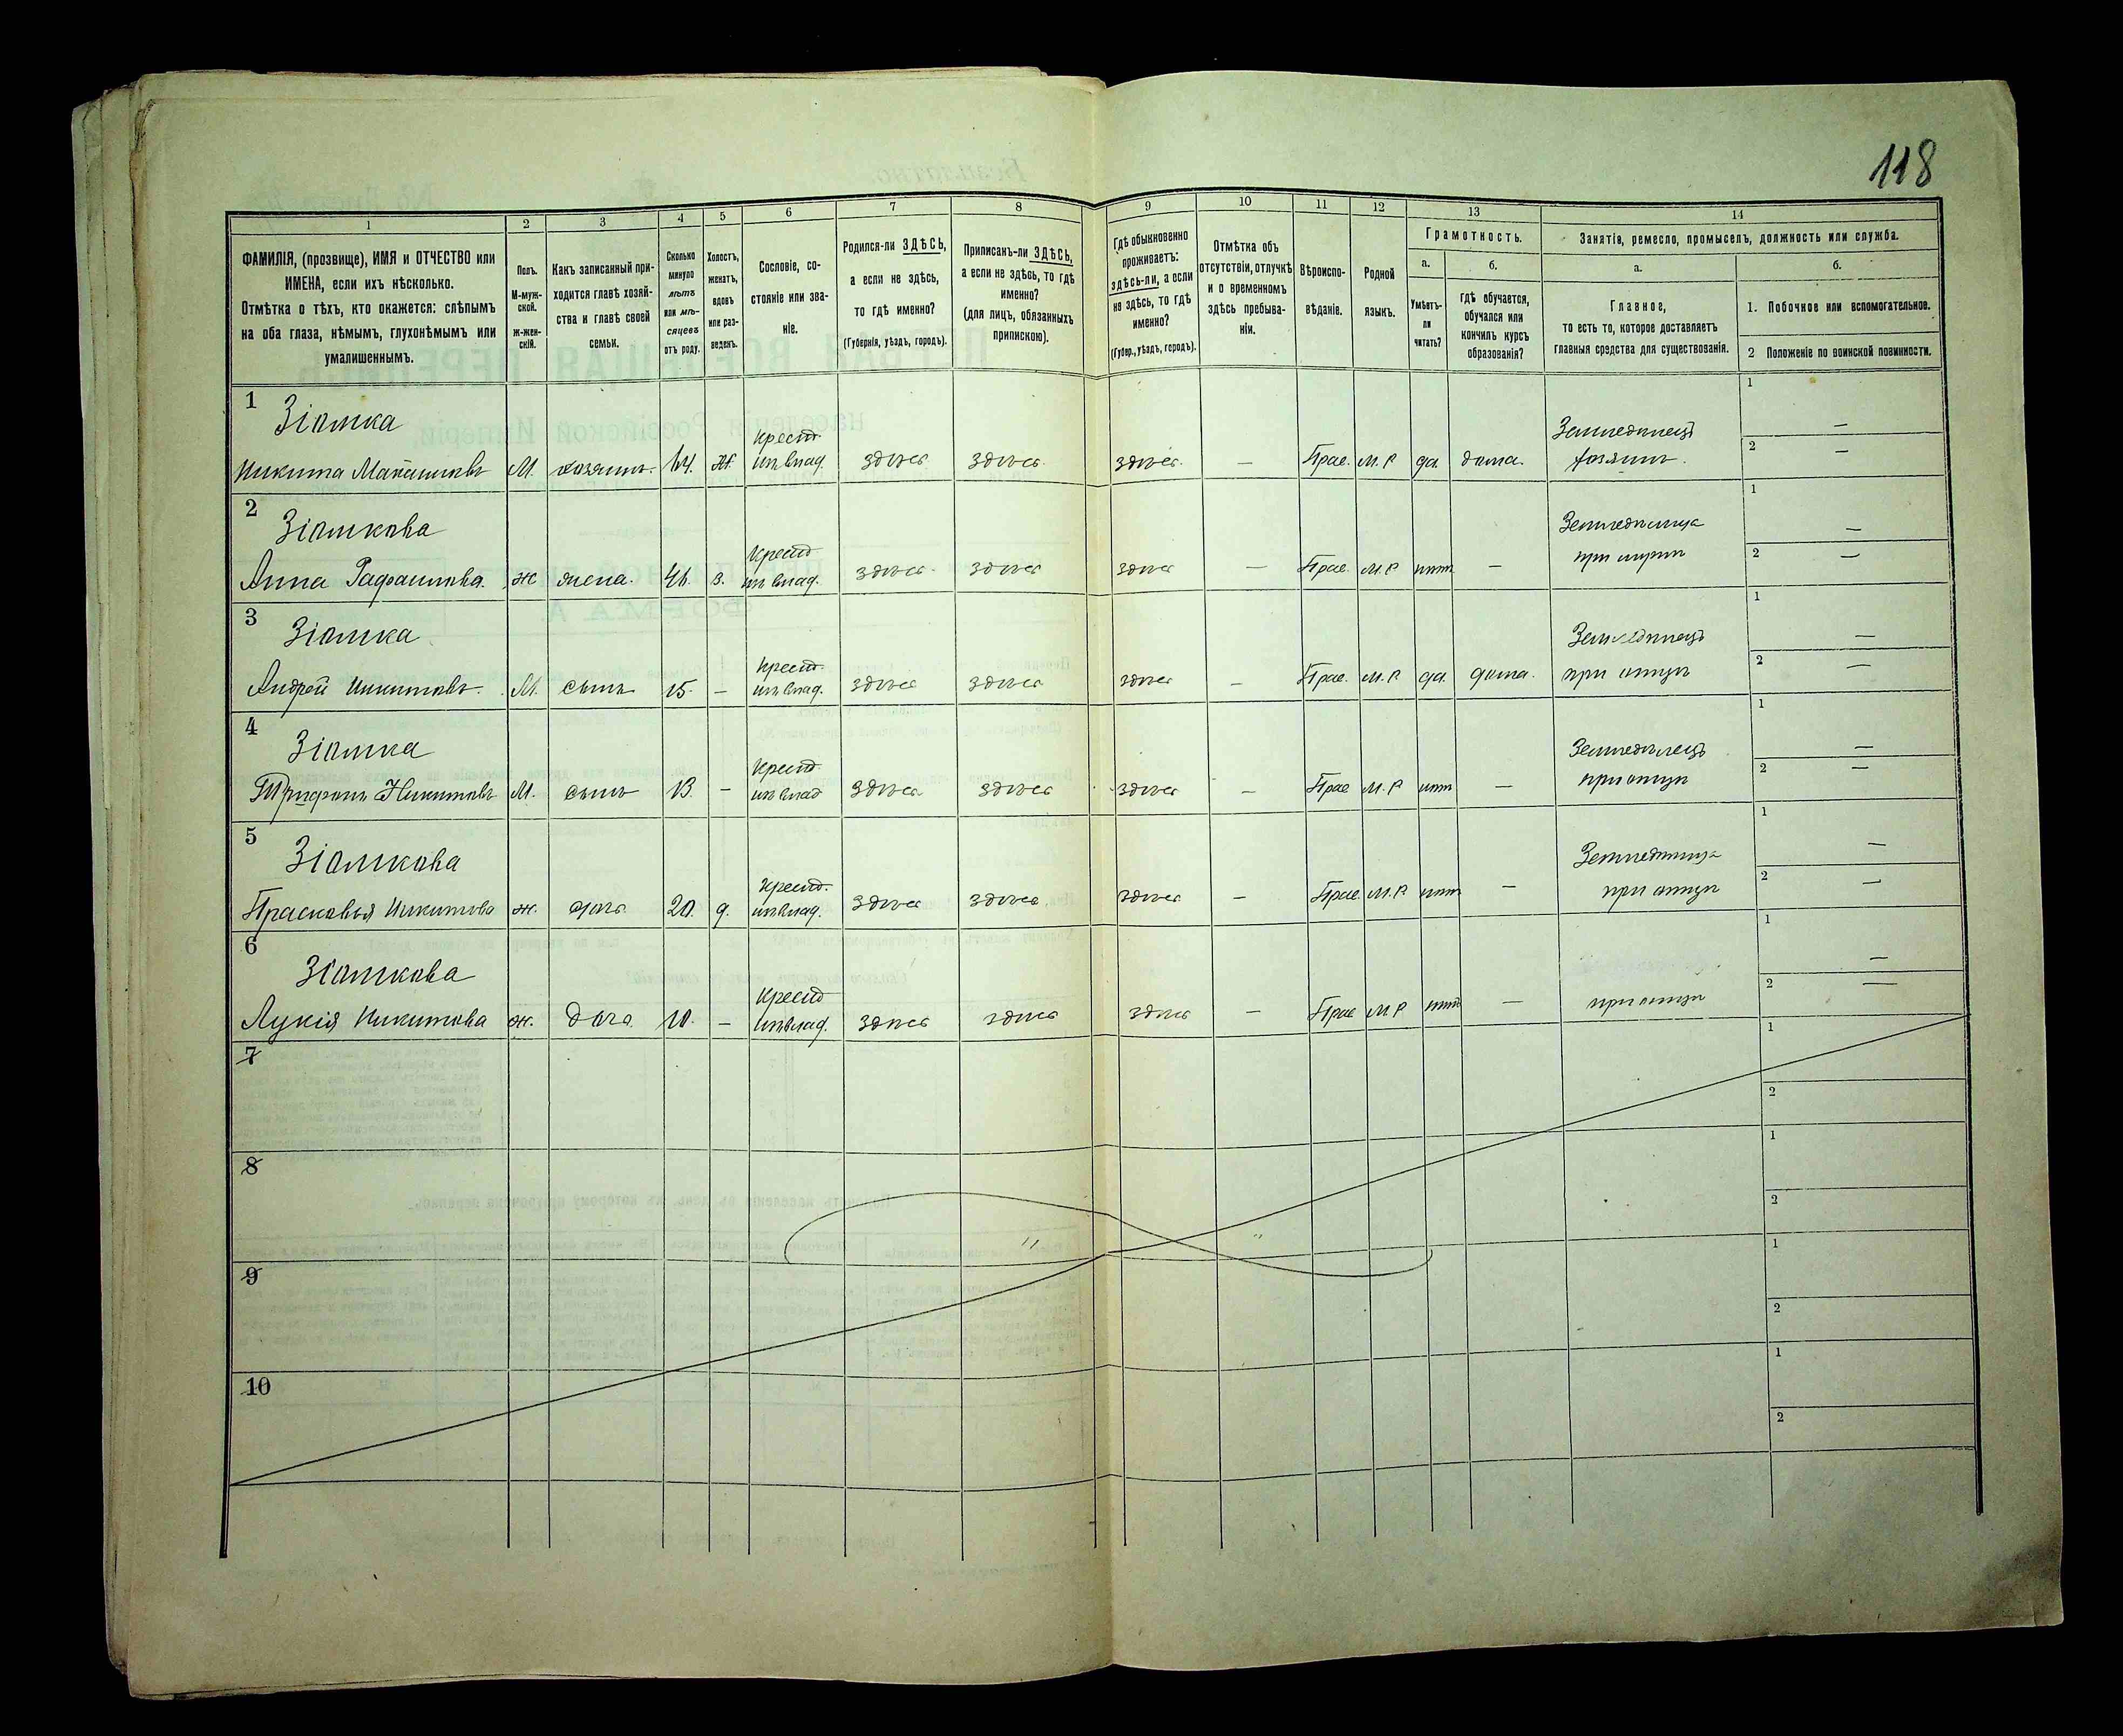 118
1 2 3 4 5 6 7 8 9 10 11 12 13 14
ФАМИЛІЯ, (прозвище), ИМЯ и ОТЧЕСТВО или
ИМЕНА, если ихъ нѣсколько.
Отмѣтка о тѣхъ, кто окажется: слѣпымъ
на оба глаза, нѣмымъ, глухонѣмымъ или
умалишеннымъ.
Полъ.
М-муж-
ской.
ж-жен-
скій.
Какъ записанный при-
ходится главѣ хозяй-
ства и главѣ своей
семьи.
Сколько
минуло
лѣтъ
или мѣ-
сяцевъ
отъ роду.
Холостъ,
женатъ,
вдовъ
или раз-
веденъ.
Сословіе, со-
стояніе или зва-
ніе.
Родился-ли ЗДѢСЬ,
а если не здѣсь,
то гдѣ именно?
(Губернія, уѣздъ, городъ).
Приписанъ-ли ЗДѢСЬ,
а если не здѣсь, то гдѣ
именно?
(для лицъ, обязанныхъ
припискою).
Гдѣ обыкновенно
проживаетъ:
здѣсь-ли, а если
не здѣсь, то гдѣ
именно?
(Губер., уѣздъ, городъ).
Отмѣтка объ
отсутствіи, отлучкѣ
и о временномъ
здѣсь пребыва-
ніи.
Вѣроиспо-
вѣданіе.
Родной
языкъ.
Грамотность.
а.
Умѣетъ-
ли
читать?
б.
Гдѣ обучается,
обучался или
кончилъ курсъ
образованія?
Занятія, ремесло, промыселъ, должность или служба.
а.
Главное,
то есть то, которое доставляетъ
главныя средства для существованія.
б.
1. Побочное или вспомогательное.
2 Положеніе по воинской повинности.
1
Зіомка
Крест. Земледѣлецъ
Никита М. хозяинъ. ж. здѣсь здѣсь здѣсь — Прав. М.Р да. дома. хозяинъ.
1 —
2 —
2
Зіомкова
Крест Земледѣлица
Анна ж жена. 46. з. здѣсь здѣсь здѣсь — Прав. М.Р нѣтъ — при мужѣ
1 —
2 —
3
Зіомка
Крест. Земледѣлецъ
Андрей Никитовъ. М. сынъ 15. — здѣсь здѣсь здѣсь — Прав. М.Р да. дома. при отцѣ
1 —
2 —
4
Зіомка
Крест. Земледѣлецъ
Трифонъ Никитовъ М. сынъ 13. — здѣсь здѣсь здѣсь — Прав М.Р нѣтъ — при отцѣ
1 —
2 —
5
Зіомкова
Крест. Земледѣлица
Прасковья Никитова ж. дочь 20. д. здѣсь здѣсь здѣсь — Прав. М.Р нѣтъ — при отцѣ
1 —
2 —
6
Зіомкова
Крест
Лукія Никитова ж. дочь. 10. — здѣсь здѣсь здѣсь — Прав М Р нѣтъ — при отцѣ
1 —
2 —
7
1
2
8
1
2
9
1
2
10
1
2